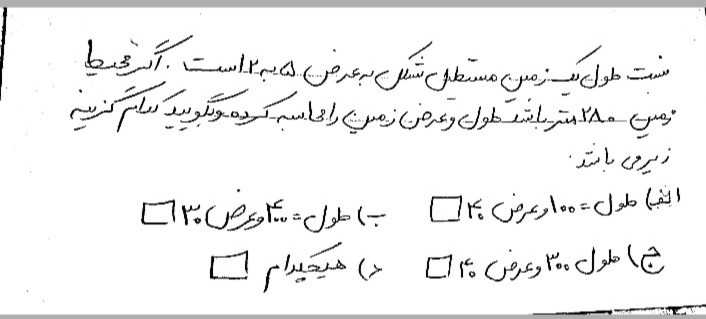 نسبت طول یک زمین مستطیل شکل به عرض ۵ به ۲ است. اگر محیط
زمین ۲۸۰ متر باشد طول و عرض زمین را محاسبه کرده و بگویید کدام گزینه
زیر می باشد.
الف) طول = ۱۰۰ و عرض ۴۰ □ ب) طول = ۴۰۰ و عرض ۳۰ □
ج) طول ۳۰۰ و عرض ۴۰ □ د) هیچکدام □